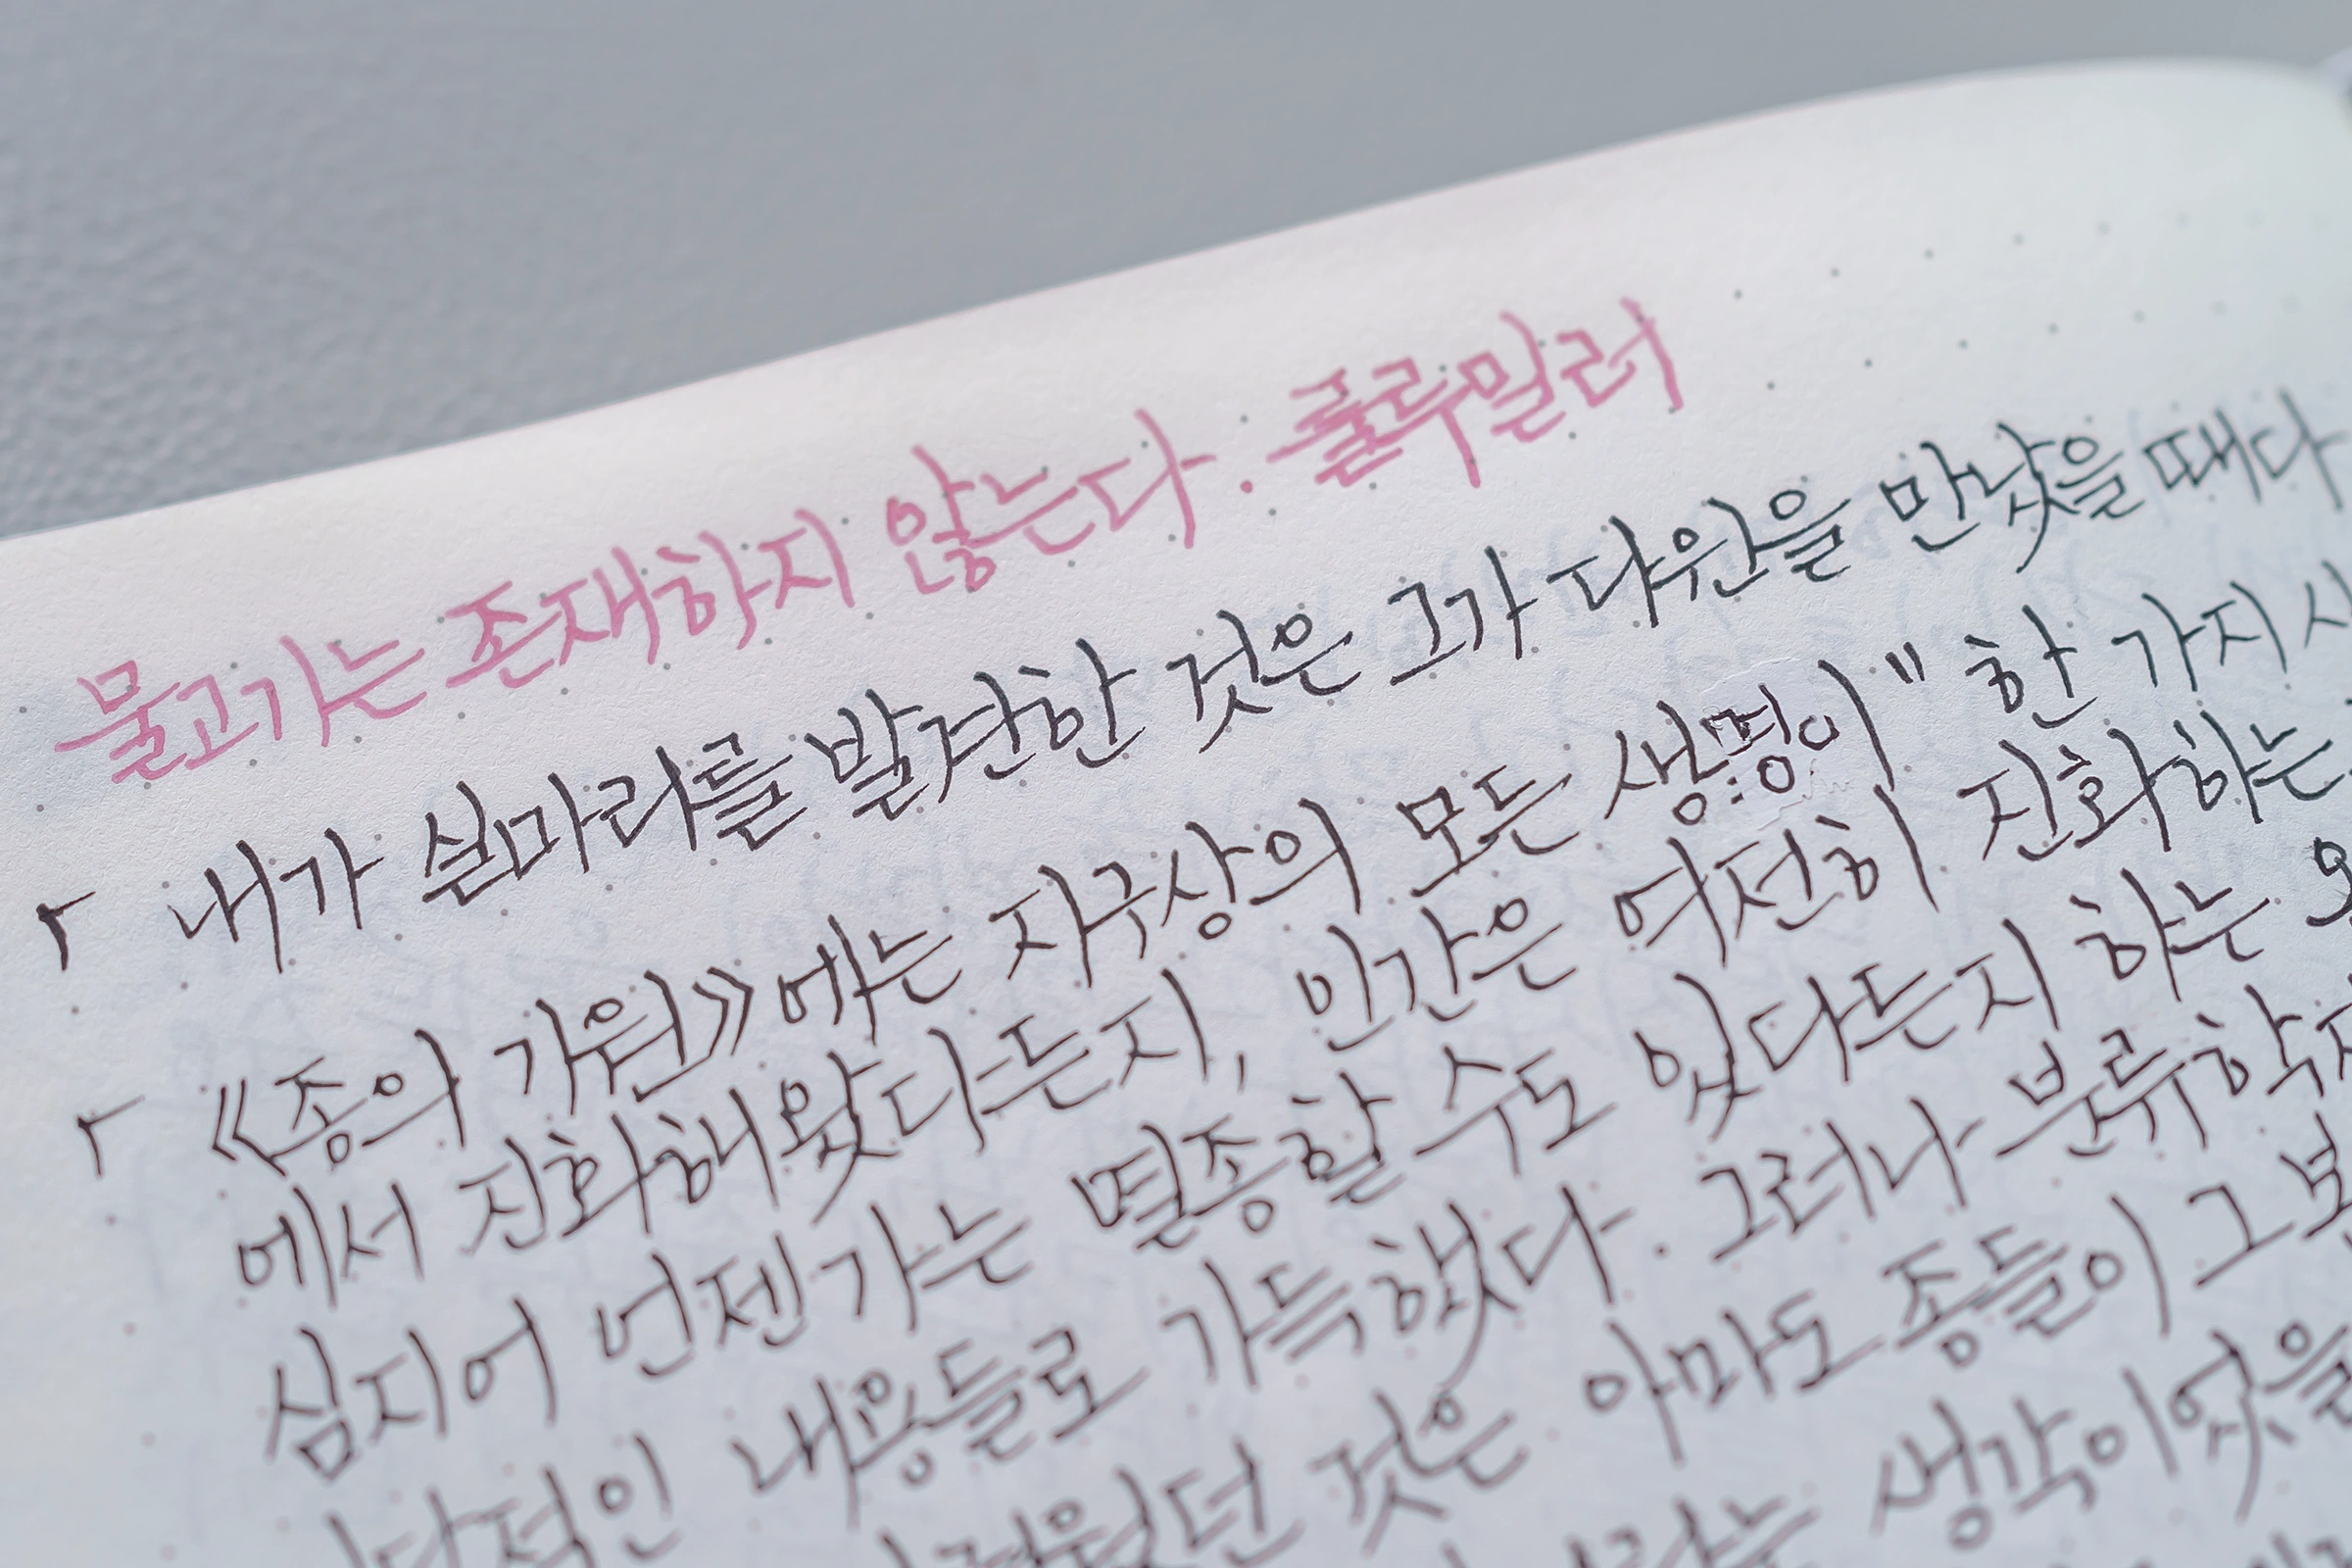 물고기는 존재하지 않는다 · 룰루밀러
「 내가 실마리를 발견한 것은 그가 다윈을 만났을 때다
「 《종의 기원》에는 지구상의 모든 생명이 " 한 가지
에서 진화해왔다든지, 인간은 여전히 진화하는
심지어 언젠가는 멸종할 수도 있다든지 하는
내용들로 가득했다. 그러나 분류학자
것은 아마도 종들이 그
생각이었을